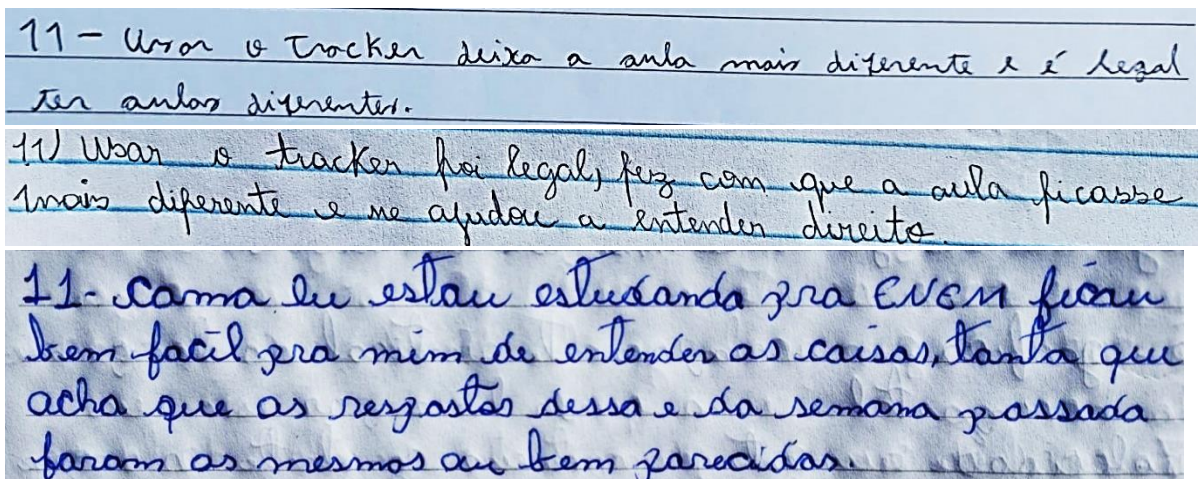 11- Usar o Tracker deixa a aula mais diferente e é legal
ter aulas diferentes.
11) Usar o tracker foi legal, fez com que a aula ficasse
mais diferente e me ajudou a entender direito.
11- Como eu estou estudando pra ENEM ficou
bem facil pra mim de entender as coisas, tanto que
acho que as respostas dessa e da semana passada
foram as mesmas ou bem parecidas.